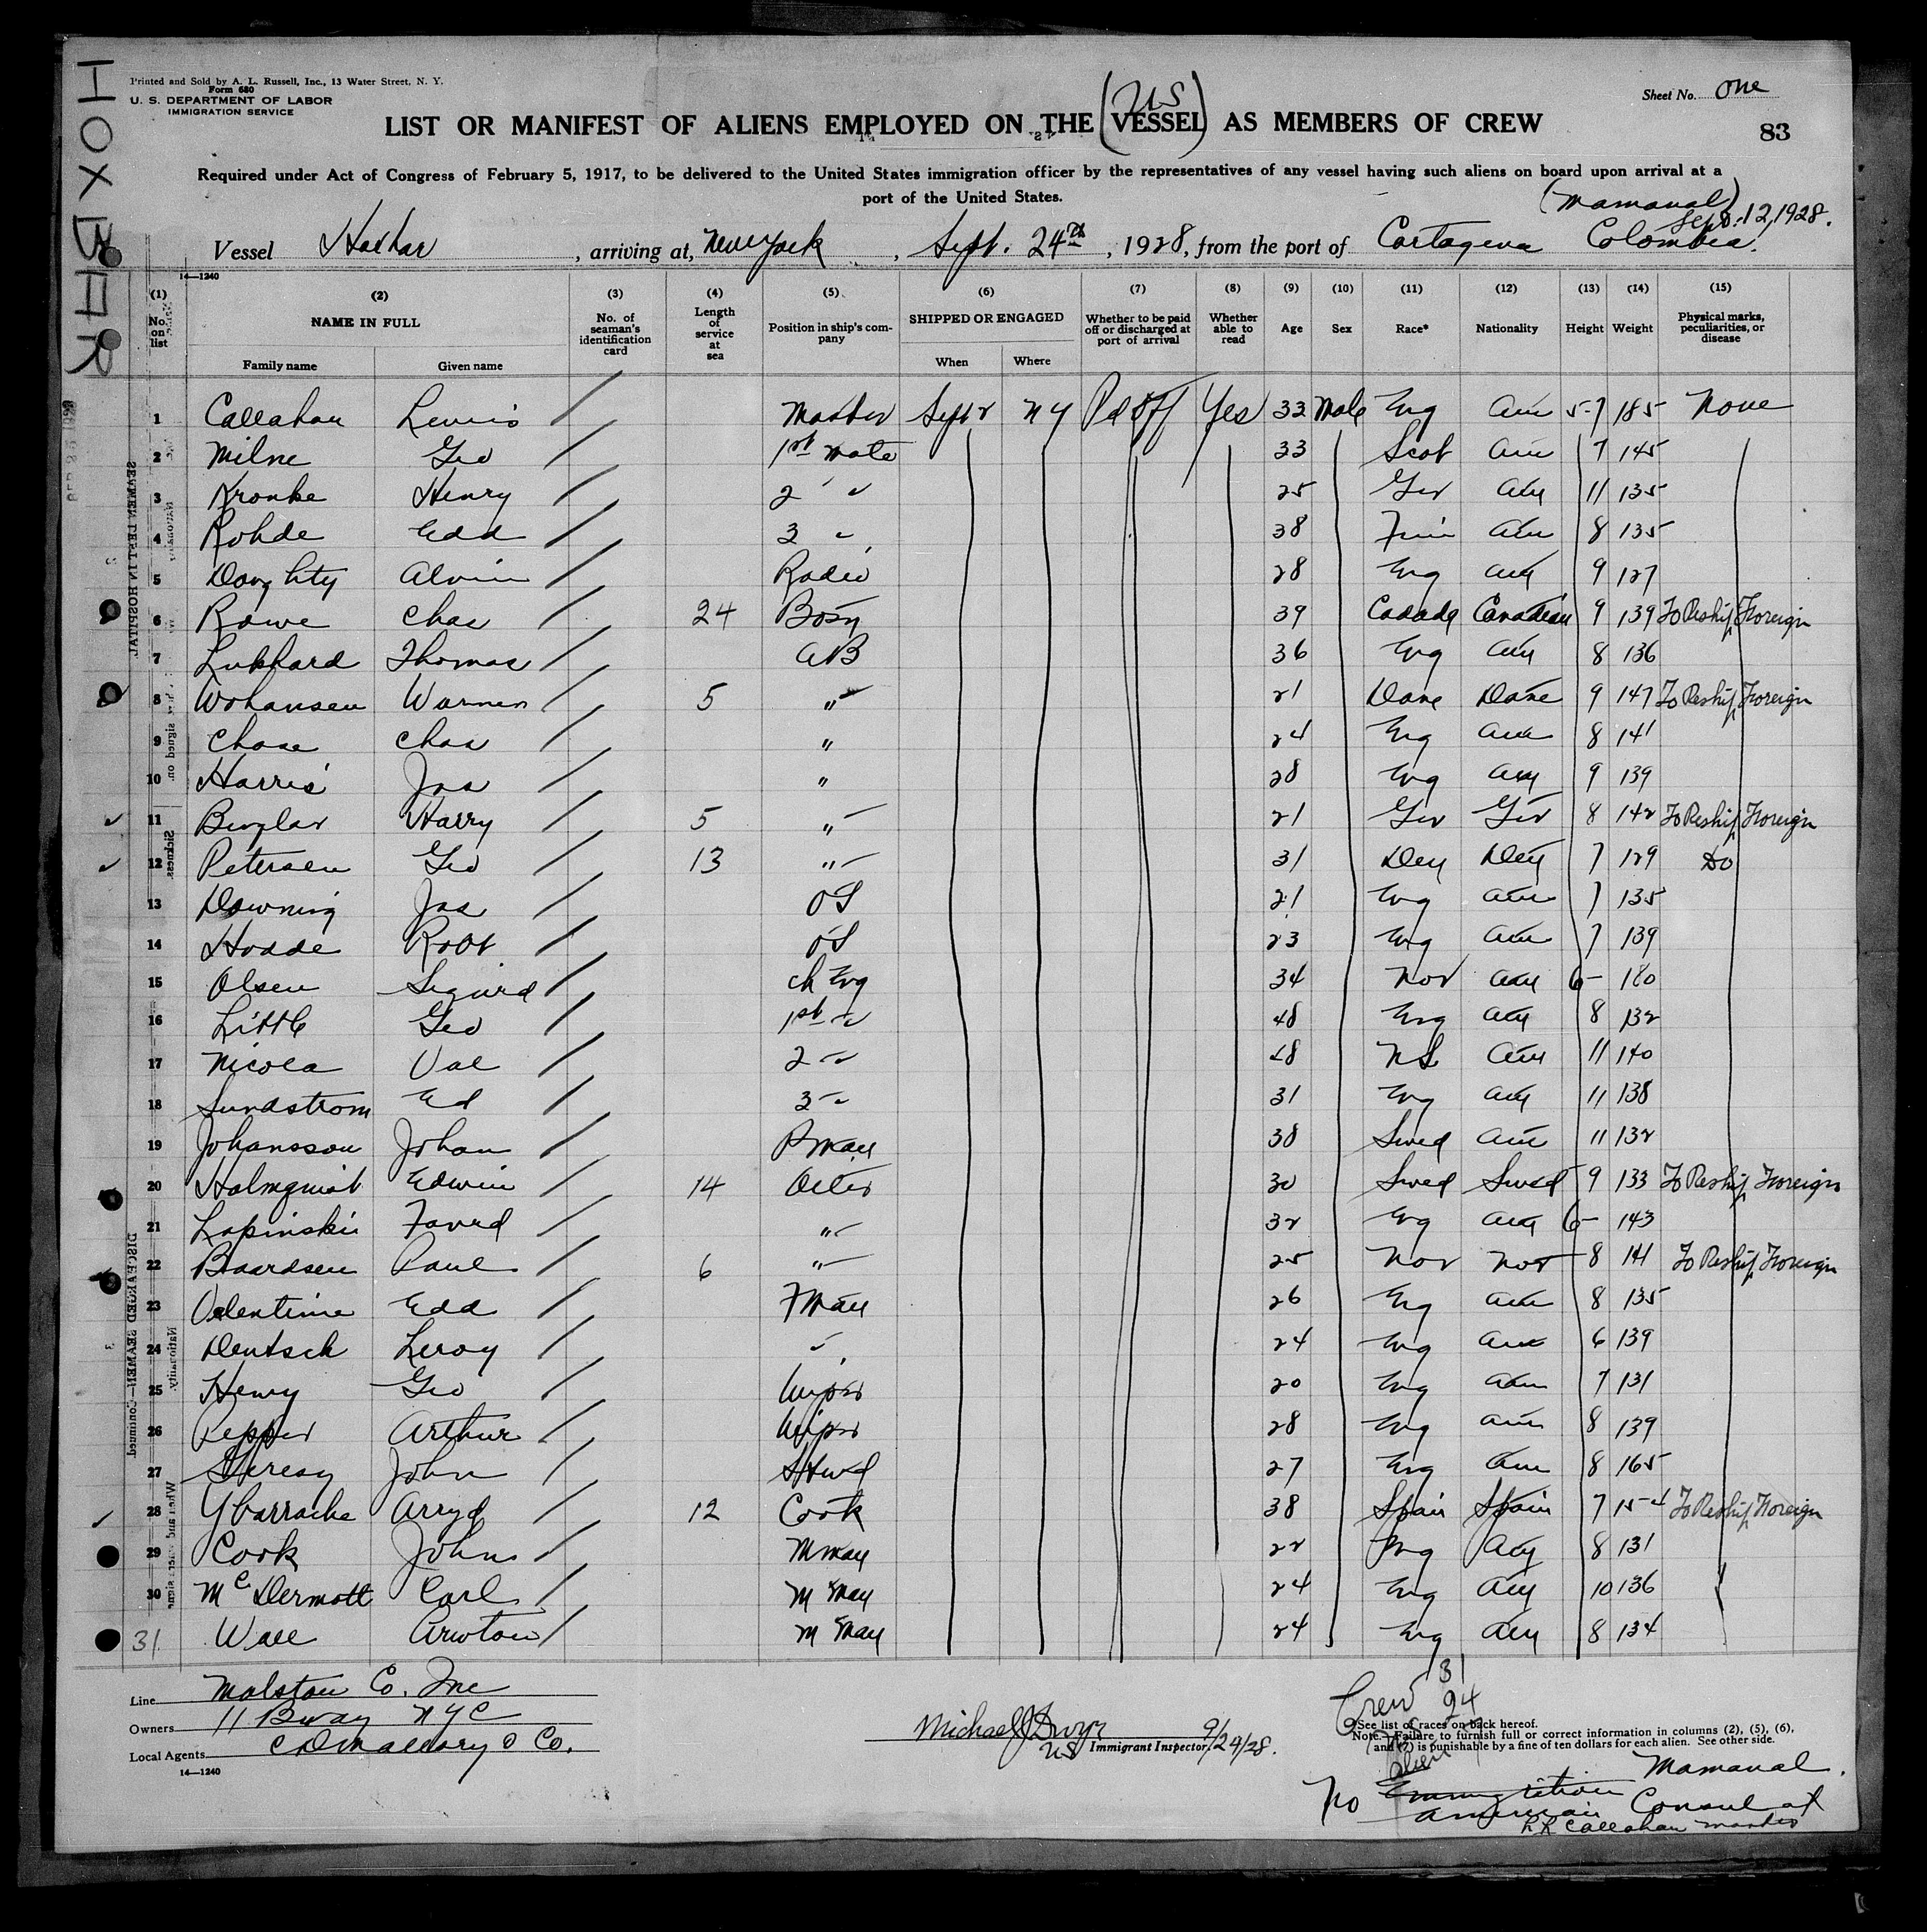 HOXBAR
Printed and Sold by A. L. Russell, Inc., 13 Water Street, N. Y.
Form 680
U. S. DEPARTMENT OF LABOR
IMMIGRATION SERVICE
Sheet No. One
(US)
LIST OR MANIFEST OF ALIENS EMPLOYED ON THE VESSEL AS MEMBERS OF CREW
83
Required under Act of Congress of February 5, 1917, to be delivered to the United States immigration officer by the representatives of any vessel having such aliens on board upon arrival at a
port of the United States.
(Mamanal) Sept. 12, 1928.
Vessel Hoxbar, arriving at, New York, Sept. 24th, 1928, from the port of Cartagena Colombia.
14—1240
(1) No. on list
(2) NAME IN FULL Family name Given name
(3) No. of seaman's identification card
(4) Length of service at sea
(5) Position in ship's company
(6) SHIPPED OR ENGAGED When Where
(7) Whether to be paid off or discharged at port of arrival
(8) Whether able to read
(9) Age
(10) Sex
(11) Race*
(12) Nationality
(13) Height
(14) Weight
(15) Physical marks, peculiarities, or disease
1 Callahan Lewis Master Sept 2 NY Pd Off Yes 32 Male Eng Am 5-7 185 None
2 Milne Geo 1st Mate 33 Scot Am 7 145
3 Kronke Henry 2 " " 25 Ger Am 11 135
4 Rohde Edd 3 " 38 Finn Am 8 135
5 Doughty Alvin Radio 28 Eng Am 9 127
6 Rowe Chas 24 Bosn 39 Canada Canadian 9 139 To Reship Foreign
7 Lukhard Thomas AB 36 Eng Am 8 136
8 Wohansen Warner 5 " 21 Dane Dane 9 147 To Reship Foreign
9 Chase Chas " 24 Eng Am 8 141
10 Harris Jas " 28 Eng Am 9 139
11 Harry 5 " 21 Ger Ger 8 142 To Reship Foreign
12 Petersen Geo 13 " 31 Den Den 7 129 Do
13 Downing Jas OS 21 Eng Am 7 135
14 Hodde Robt OS 23 Eng Am 7 139
15 Olsen Sigurd Ch Eng 34 Nor Am 6- 180
16 Little Geo 1st " 48 Eng Am 8 132
17 Nicola Val 2 " Am 11 140
18 Sundstrom Ed 3 " 31 Eng Am 11 138
19 Johansson Johan Pman 38 Swed Am 11 132
20 Holmquist Edwin 14 Oiler 30 Swed Swed 9 133 To Reship Foreign
21 Lapinski " 32 Eng Am 6- 143
22 Baardsen Paul 6 " 25 Nor Nor 8 141 To Reship Foreign
23 Valentine Edd Fman 26 Eng Am 8 135
24 Deutsch Leroy " 24 Eng Am 6 139
25 Henry Geo Wiper 20 Eng Am 7 131
26 Pepper Arthur Wiper 28 Eng Am 8 139
27 John Stwd 27 Eng Am 8 165
28 Ybarrache 12 Cook 38 Spain Spain 7 154 To Reship Foreign
29 Cook John Mman 22 Eng Am 8 131
30 McDermott Carl M Man 24 Eng Am 10 136
31 Wall M Man 24 Eng Am 8 134
Line Malston Co. Inc
Owners 11 Bway NYC
Local Agents C D Mallory & Co.
14—1240
Michael J Dwyer 9/24/28.
US Immigrant Inspector
Crew 31
24
Alien
*See list of races on back hereof.
Note.—Failure to furnish full or correct information in columns (2), (5), (6),
and (7) is punishable by a fine of ten dollars for each alien. See other side.
No American Consul at Mamanal.
Callahan Master
SEAMEN LEFT IN HOSPITAL
DISCHARGED SEAMEN—Continued
Nationality.
Sickness.